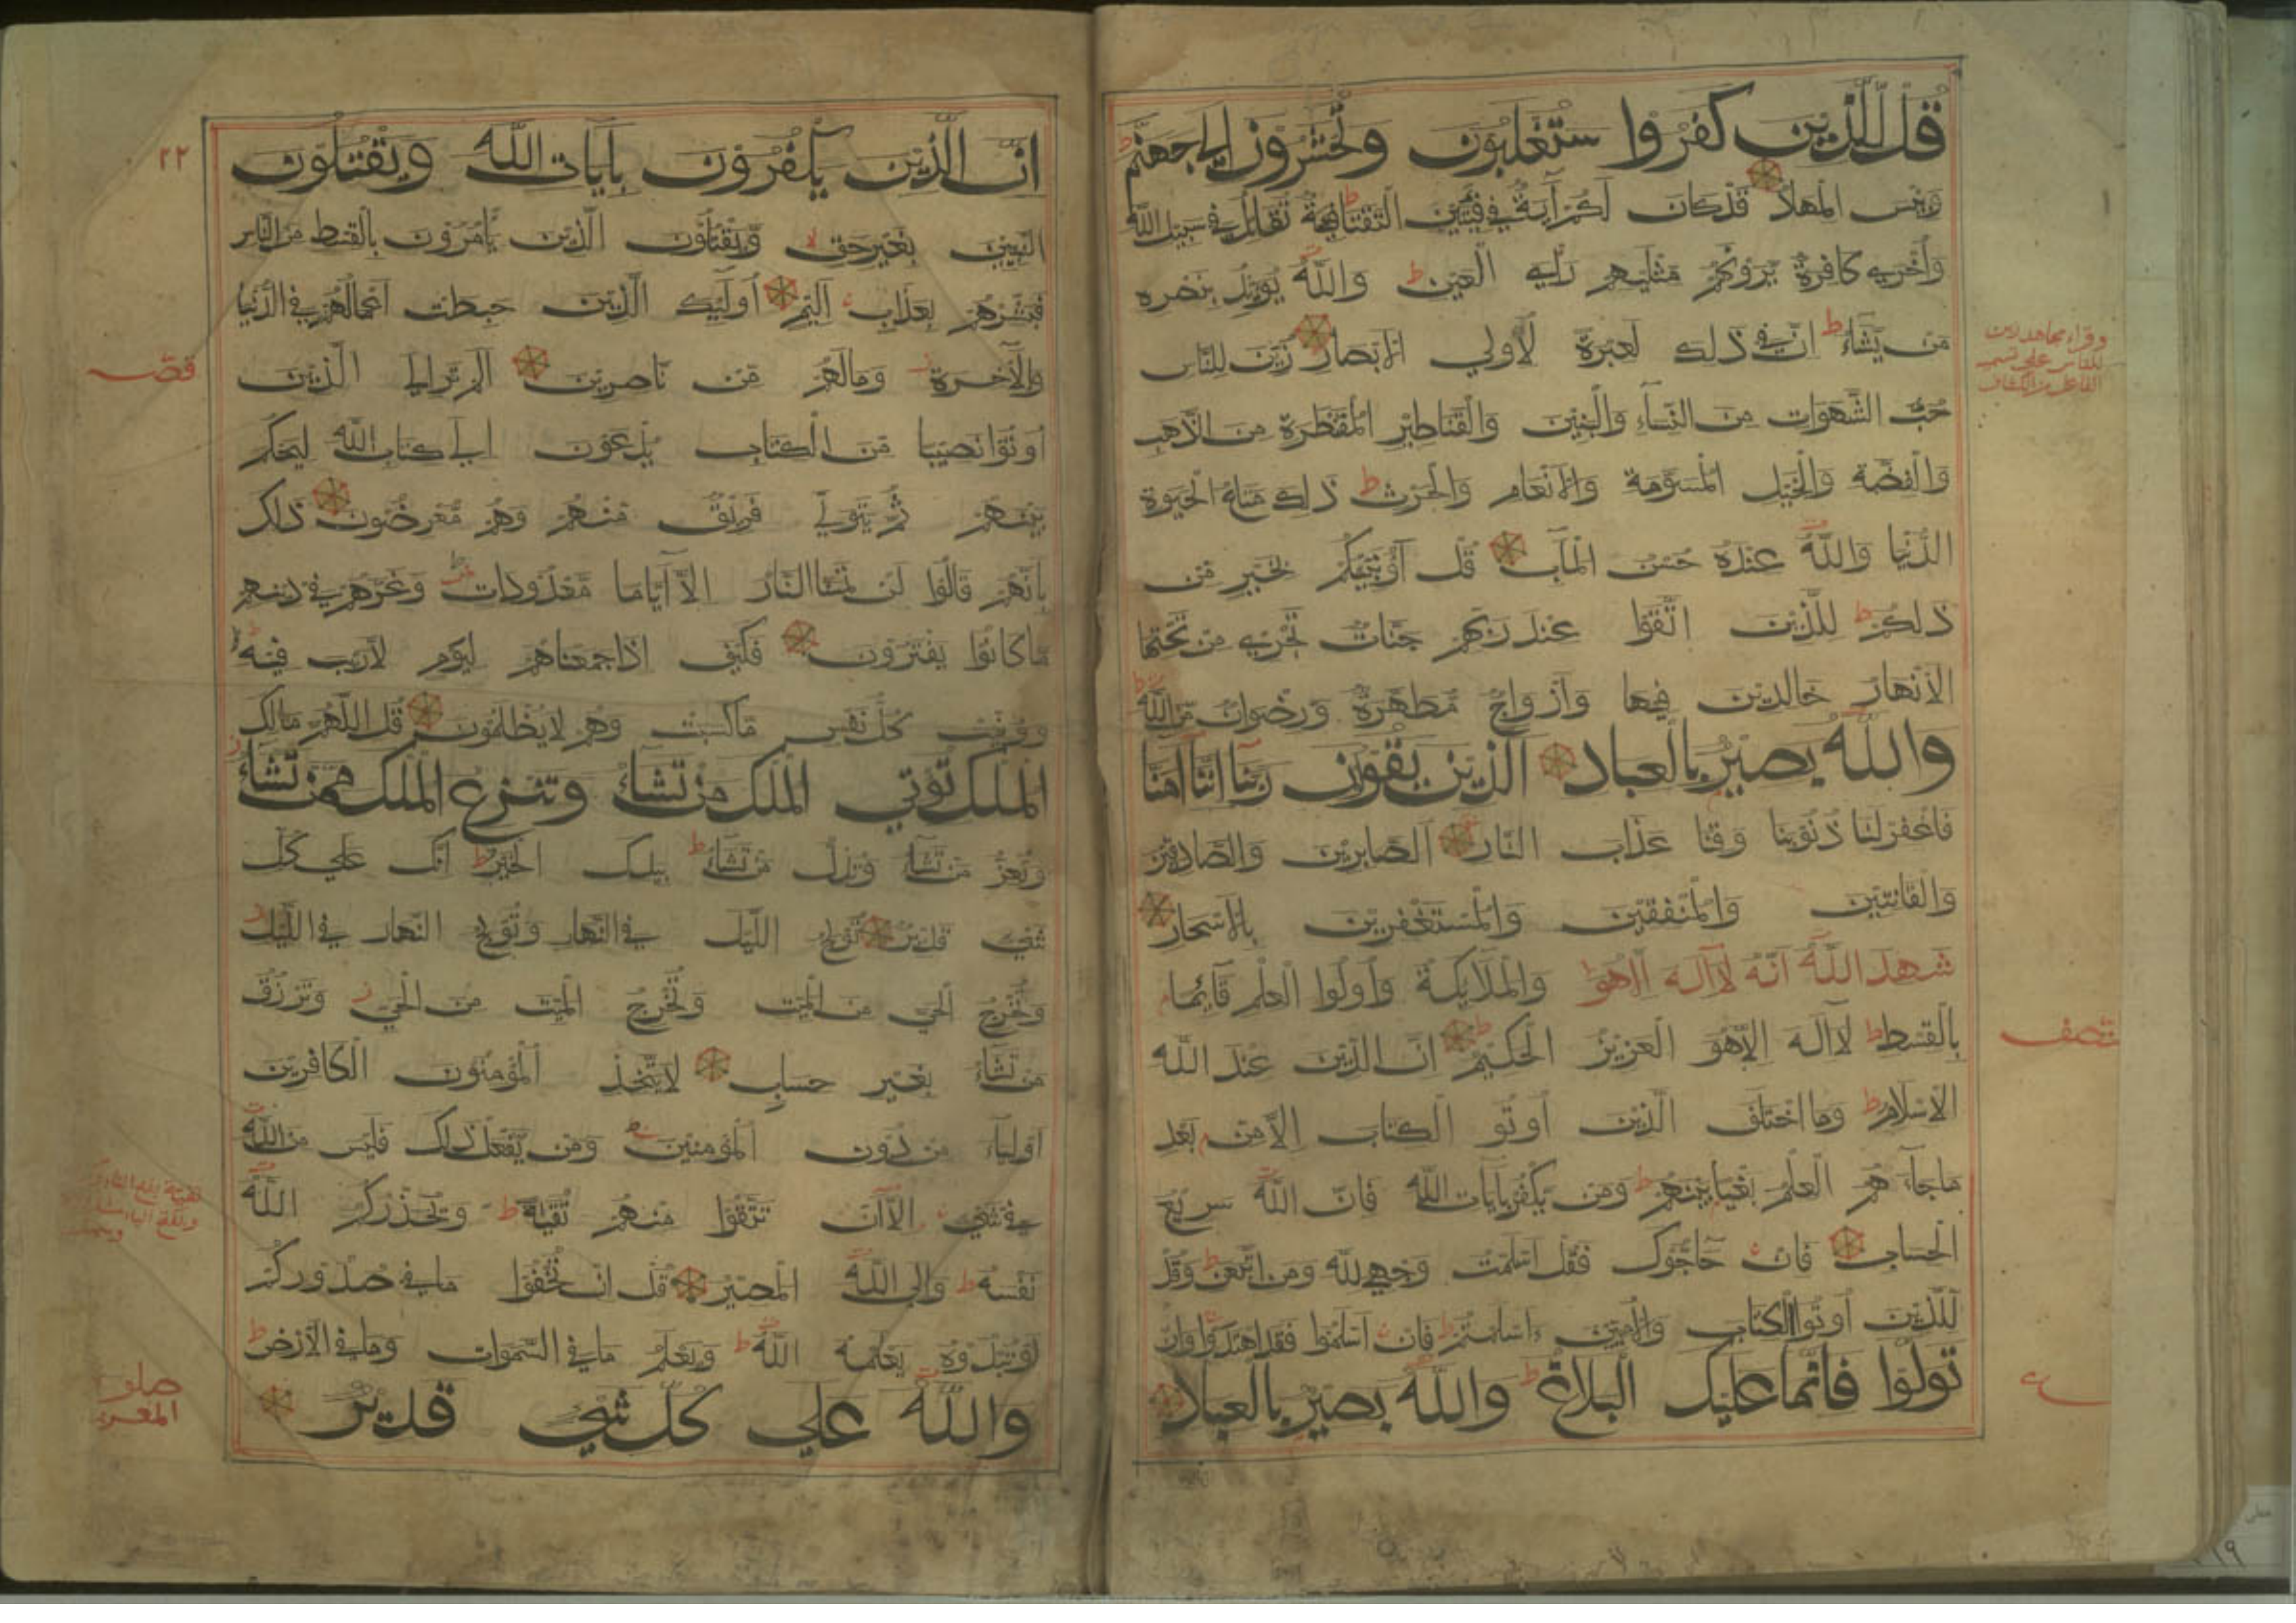 قل للذين كفروا ستغلبون وتحشرون إلى جهنم ط
وبئس المهاد قد كان لكم آية في فئتين التقتا ط فئة تقاتل في سبيل الله
وأخرى كافرة يرونهم مثليهم رأي العين ط والله يؤيد بنصره
من يشاء ط ان في ذلك لعبرة لأولي الابصار زين للناس
حب الشهوات من النساء والبنين والقناطير المقنطرة من الذهب
والفضة والخيل المسومة والانعام والحرث ط ذلك متاع الحيوة
الدنيا والله عنده حسن المآب قل أؤنبئكم بخير من
ذلكم ط للذين اتقوا عند ربهم جنات تجري من تحتها
الأنهار خالدين فيها وأزواج مطهرة ورضوان من الله ط
والله بصير بالعباد الذين يقولون ربنا اننا آمنا
فاغفر لنا ذنوبنا وقنا عذاب النار الصابرين والصادقين
والقانتين والمنفقين والمستغفرين بالاسحار
شهد الله انه لا آله الا هو والملآئكة وأولوا العلم قآئما
بالقسط ط لا آله الا هو العزيز الحكيم ط ان الدين عند الله
الاسلام ط وما اختلف الذين أوتو الكتاب الا من بعد
ماجآء هم العلم بغيا بينهم ط ومن يكفر بآيات الله فان الله سريع
الحساب فان حآجوك فقل اسلمت وجهي لله ومن اتبعن ط وقل
للذين أوتوا الكتاب والأميين ءاسلمتم ط فان اسلموا فقد اهتدوا وان
تولوا فانما عليك البلاغ ط والله بصير بالعباد
نصف
٢٢
ان الذين يكفرون بآيات الله ويقتلون
النبيين بغير حق لا ويقتلون الذين يأمرون بالقسط من الناس
فبشرهم بعذاب اليم أولئك الذين حبطت أعمالهم في الدنيا
والآخرة ومالهم من ناصرين الم تر إلى الذين
أوتوا نصيبا من الكتاب يدعون الى كتاب الله ليحكم
بينهم ثم يتولى فريق منهم وهم معرضون ذلك
بانهم قالوا لن تمسنا النار الا آياما معدودات وغرهم في دينهم
ماكانوا يفترون فكيف اذا جمعناهم ليوم لاريب فيه
ووفيت كل نفس ما كسبت وهم لا يظلمون قل اللهم مالك
الملك تؤتي الملك من تشآء وتنزع الملك ممن تشآء
وتعز من تشآء وتذل من تشآء ط بيدك الخير ط انك على كل
شيء قدير تولج الليل في النهار وتولج النهار في الليل
وتخرج الحي من الميت وتخرج الميت من الحي وترزق
من تشآء بغير حساب لا يتخذ المؤمنون الكافرين
اوليآء من دون المؤمنين ومن يفعل ذلك فليس من الله
في شيء الا آن تتقوا منهم تقية ط ويحذركم الله
نفسه ط والى الله المصير قل ان تخفوا مافي صدوركم
او تبدوه يعلمه الله ط ويعلم مافي السموات ومافي الأرض ط
والله على كل شيء قدير